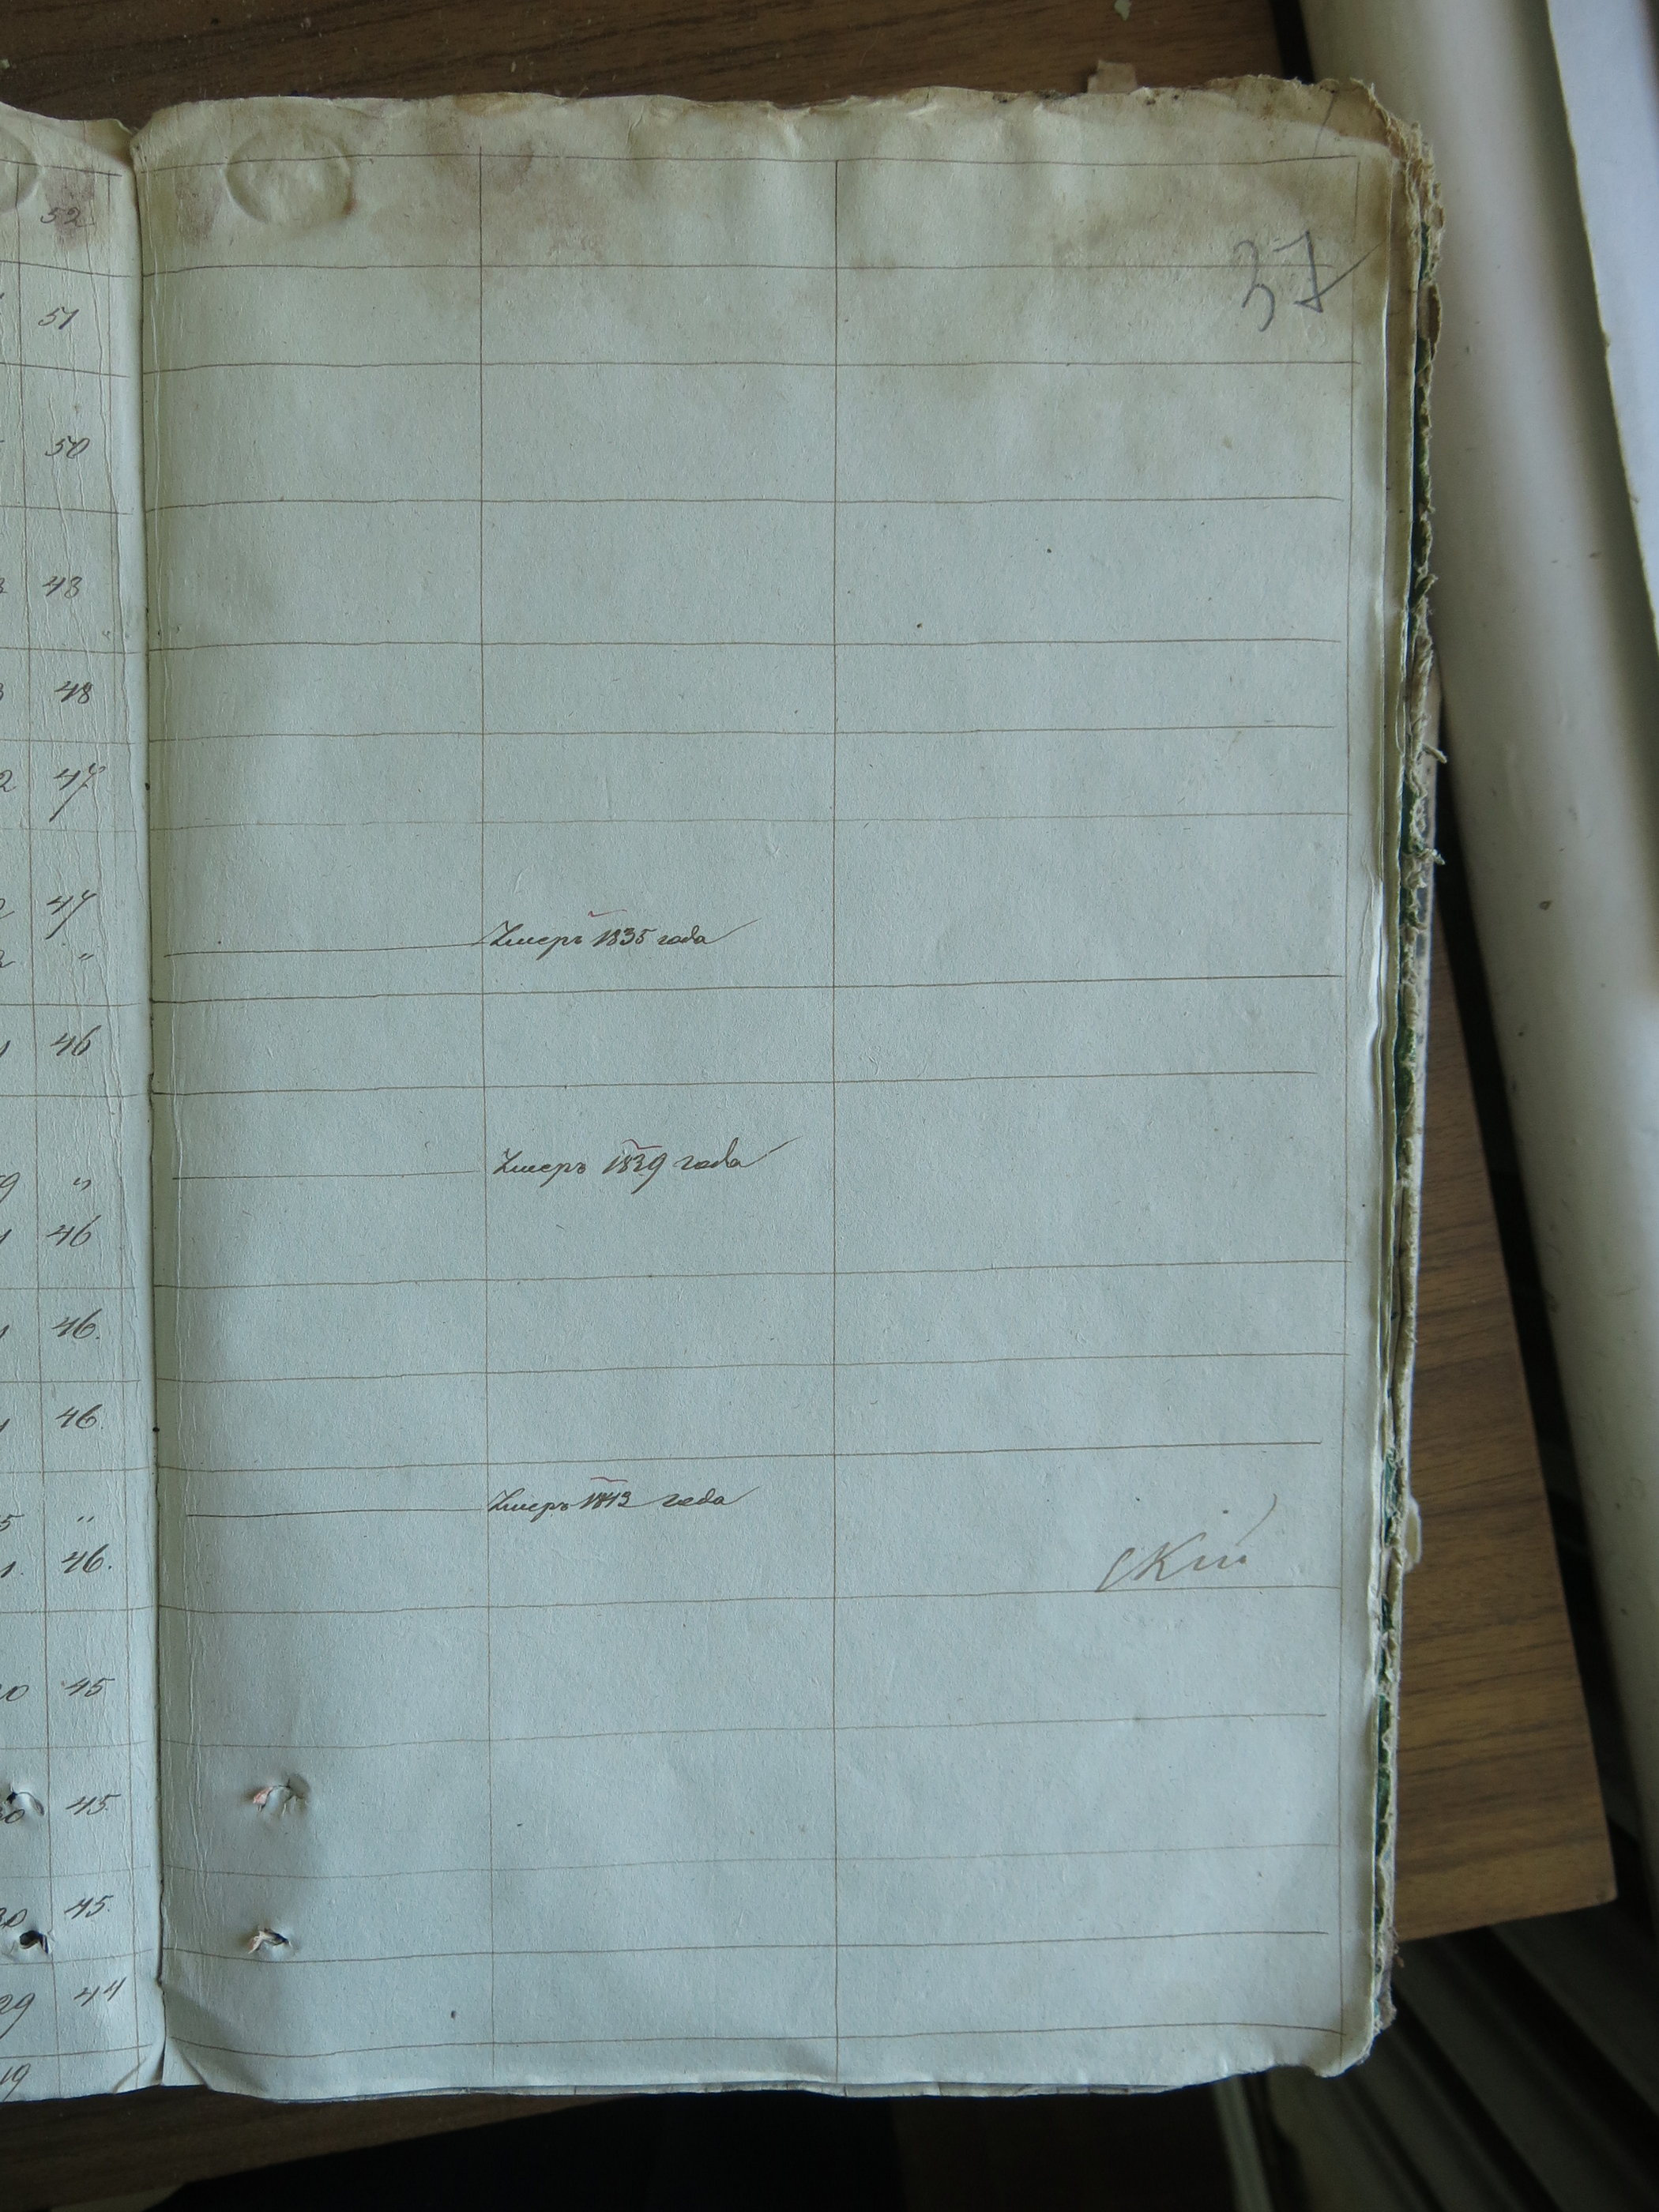 52
37
51
50
48
48
47
47
Умеръ 1835 года
"
46
Умеръ 1839 года
"
46
46.
46.
Умеръ 1843 года
"
46.
скій
45
45
45.
29 44
19